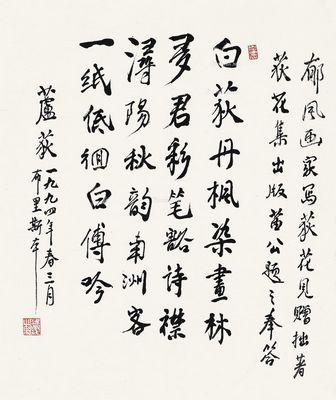 郁风画家写荻花见赠拙著
荻花集出版苗公题之奉答
白荻丹枫染画林
多君彩笔豁诗襟
浔阳秋韵南洲客
一纸低徊白傅吟
蘆荻一九九四年春三月
布里斯本